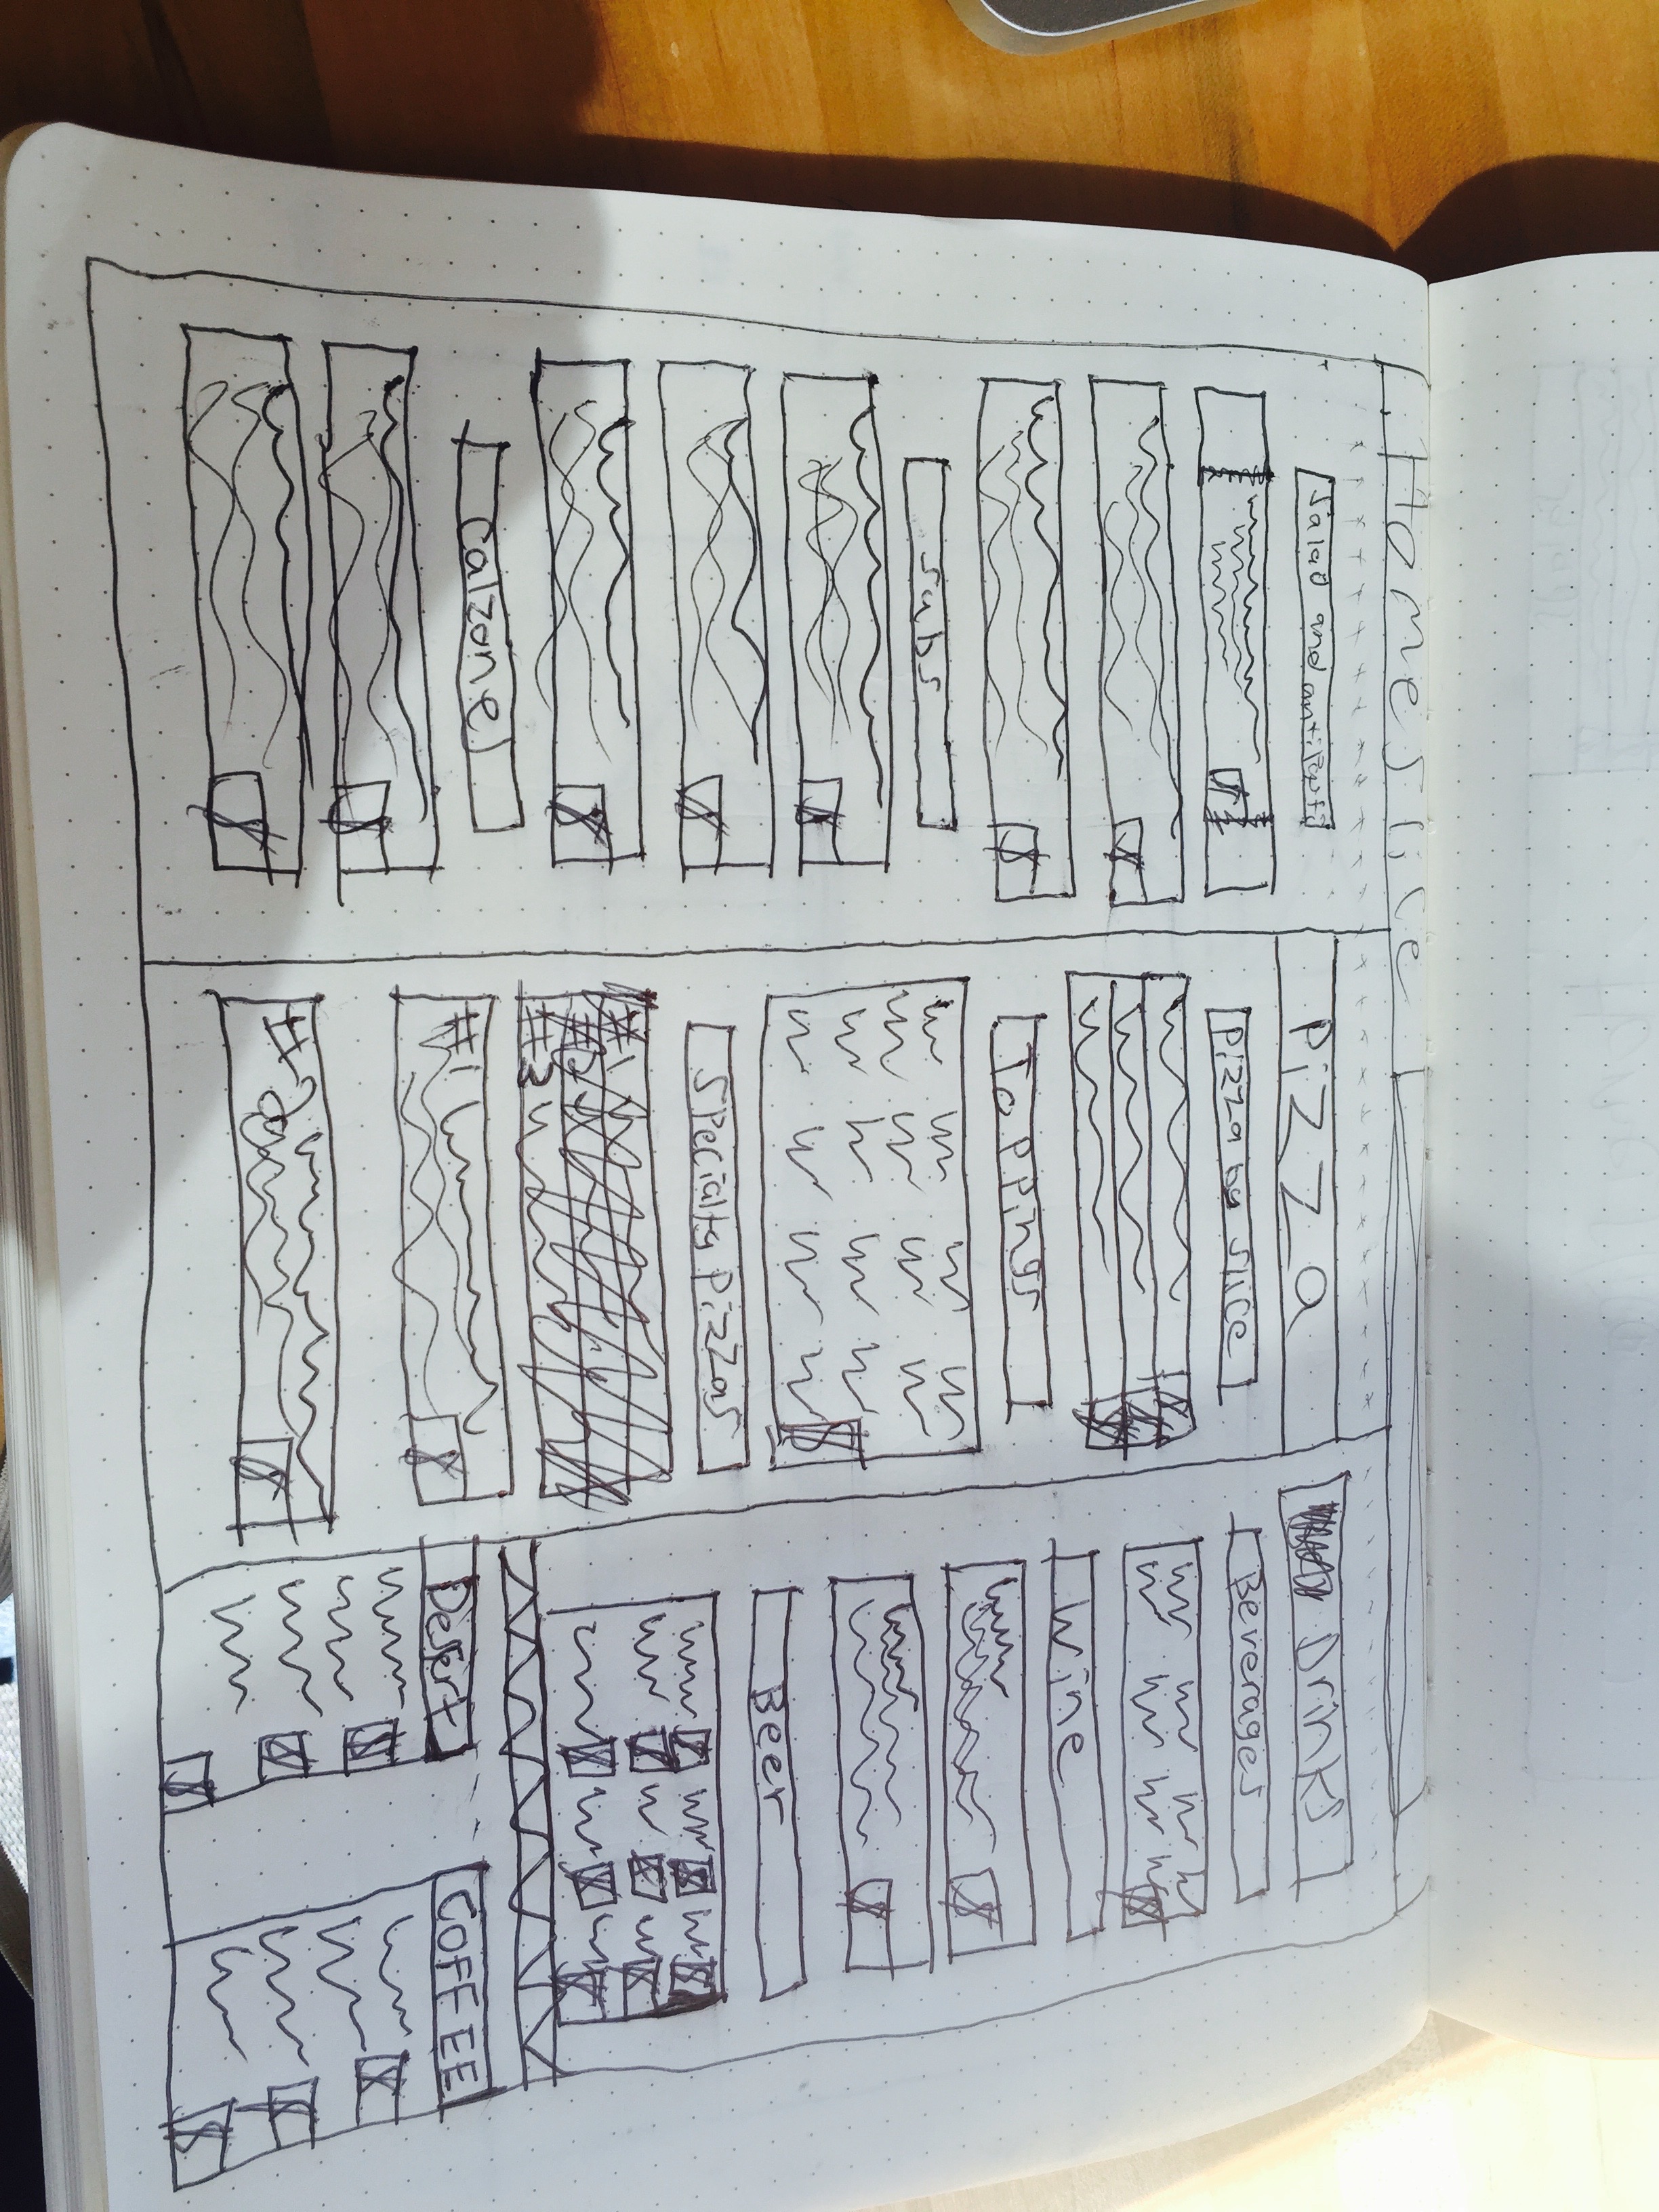 Homeslice
Salad and antipasti
$
$
$
Subs
$
$
$
Calzone
$
$
PiZZa
Pizza by slice
$
$
$
Toppings
$
Specialty Pizzas
#1
#2
#3
#1
$
#2
$
Drinks
Beverages
$
Wine
$
$
Beer
$ $ $
$ $ $
$ $ $
Dessert
$
$
$
COFFEE
$
$
$